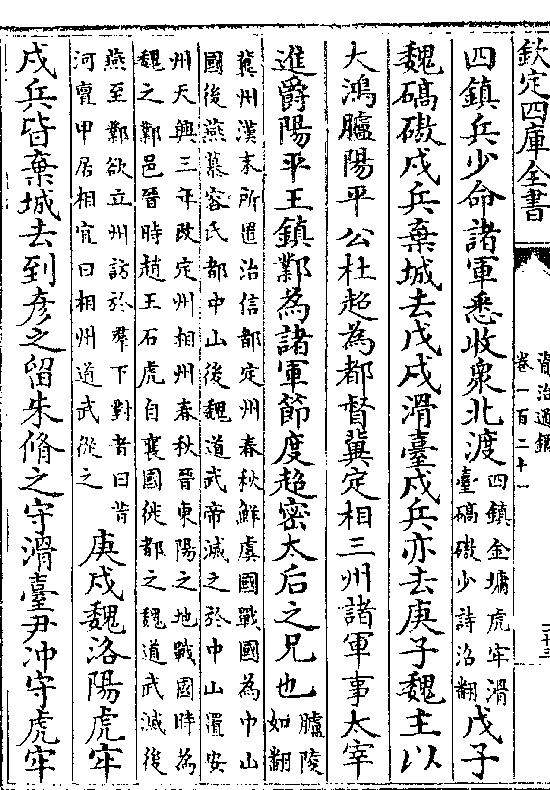 欽定四庫全書
資治通鑑
卷一百二十一
四鎮兵少命諸軍悉收衆北渡四鎮金墉虎牢滑臺碻磝少詩沼翻戊子
魏碻磝戍兵棄城去戊戌滑臺戍兵亦去庚子魏主以
大鴻臚陽平公杜超為都督冀定相三州諸軍事太宰
進爵陽平王鎮鄴為諸軍節度超密太后之兄也臚陵如翻
冀州漢末所置治信都定州春秋鮮虞國戰國為中山
國後燕慕容氏都中山後魏道武帝滅之於中山置安
州天興三年改定州相州春秋晉東陽之地戰國時為
魏之鄴邑晉時趙王石虎自襄國徙都之魏道武滅後
燕至鄴欲立州訪於羣下對者曰昔
河亶甲居相宜曰相州道武從之庚戌魏洛陽虎牢
戍兵皆棄城去到彥之留朱脩之守滑臺尹冲守虎牢